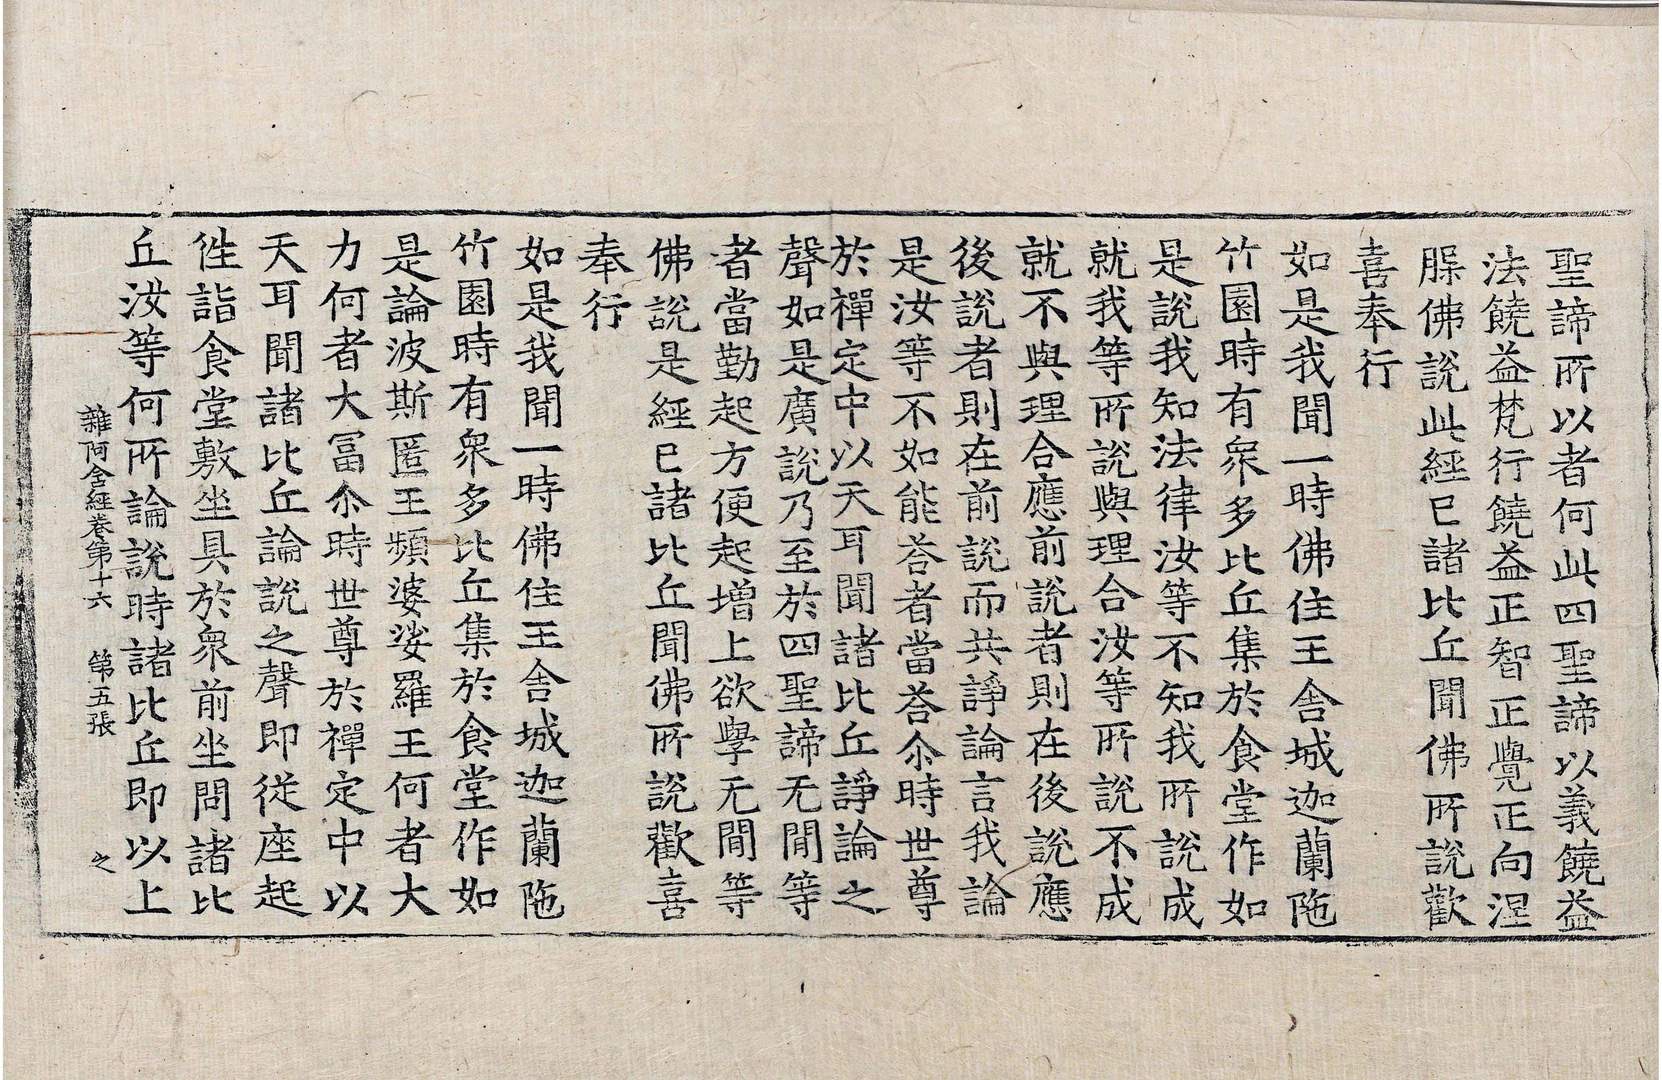 聖諦所以者何此四聖諦以義饒益
法饒益梵行饒益正智正覺正向涅
槃佛說此經已諸比丘聞佛所說歡
喜奉行
如是我聞一時佛住王舍城迦蘭陁
竹園時有衆多比丘集於食堂作如
是說我知法律汝等不知我所說成
就我等所說與理合汝等所說不成
就不與理合應前說者則在後說應
後說者則在前說而共諍論言我論
是汝等不如能荅者當荅尒時世尊
於禪定中以天耳聞諸比丘諍論之
聲如是廣說乃至於四聖諦无閒等
者當勤起方便起增上欲學无閒等
佛說是經已諸比丘聞佛所說歡喜
奉行
如是我聞一時佛住王舍城迦蘭陁
竹園時有衆多比丘集於食堂作如
是論波斯匿王頻婆娑羅王何者大
力何者大冨尒時世尊於禪定中以
天耳聞諸比丘論說之聲即從座起
徃詣食堂敷坐具於衆前坐問諸比
丘汝等何所論說時諸比丘即以上
雜阿含經卷第十六 第五張 之